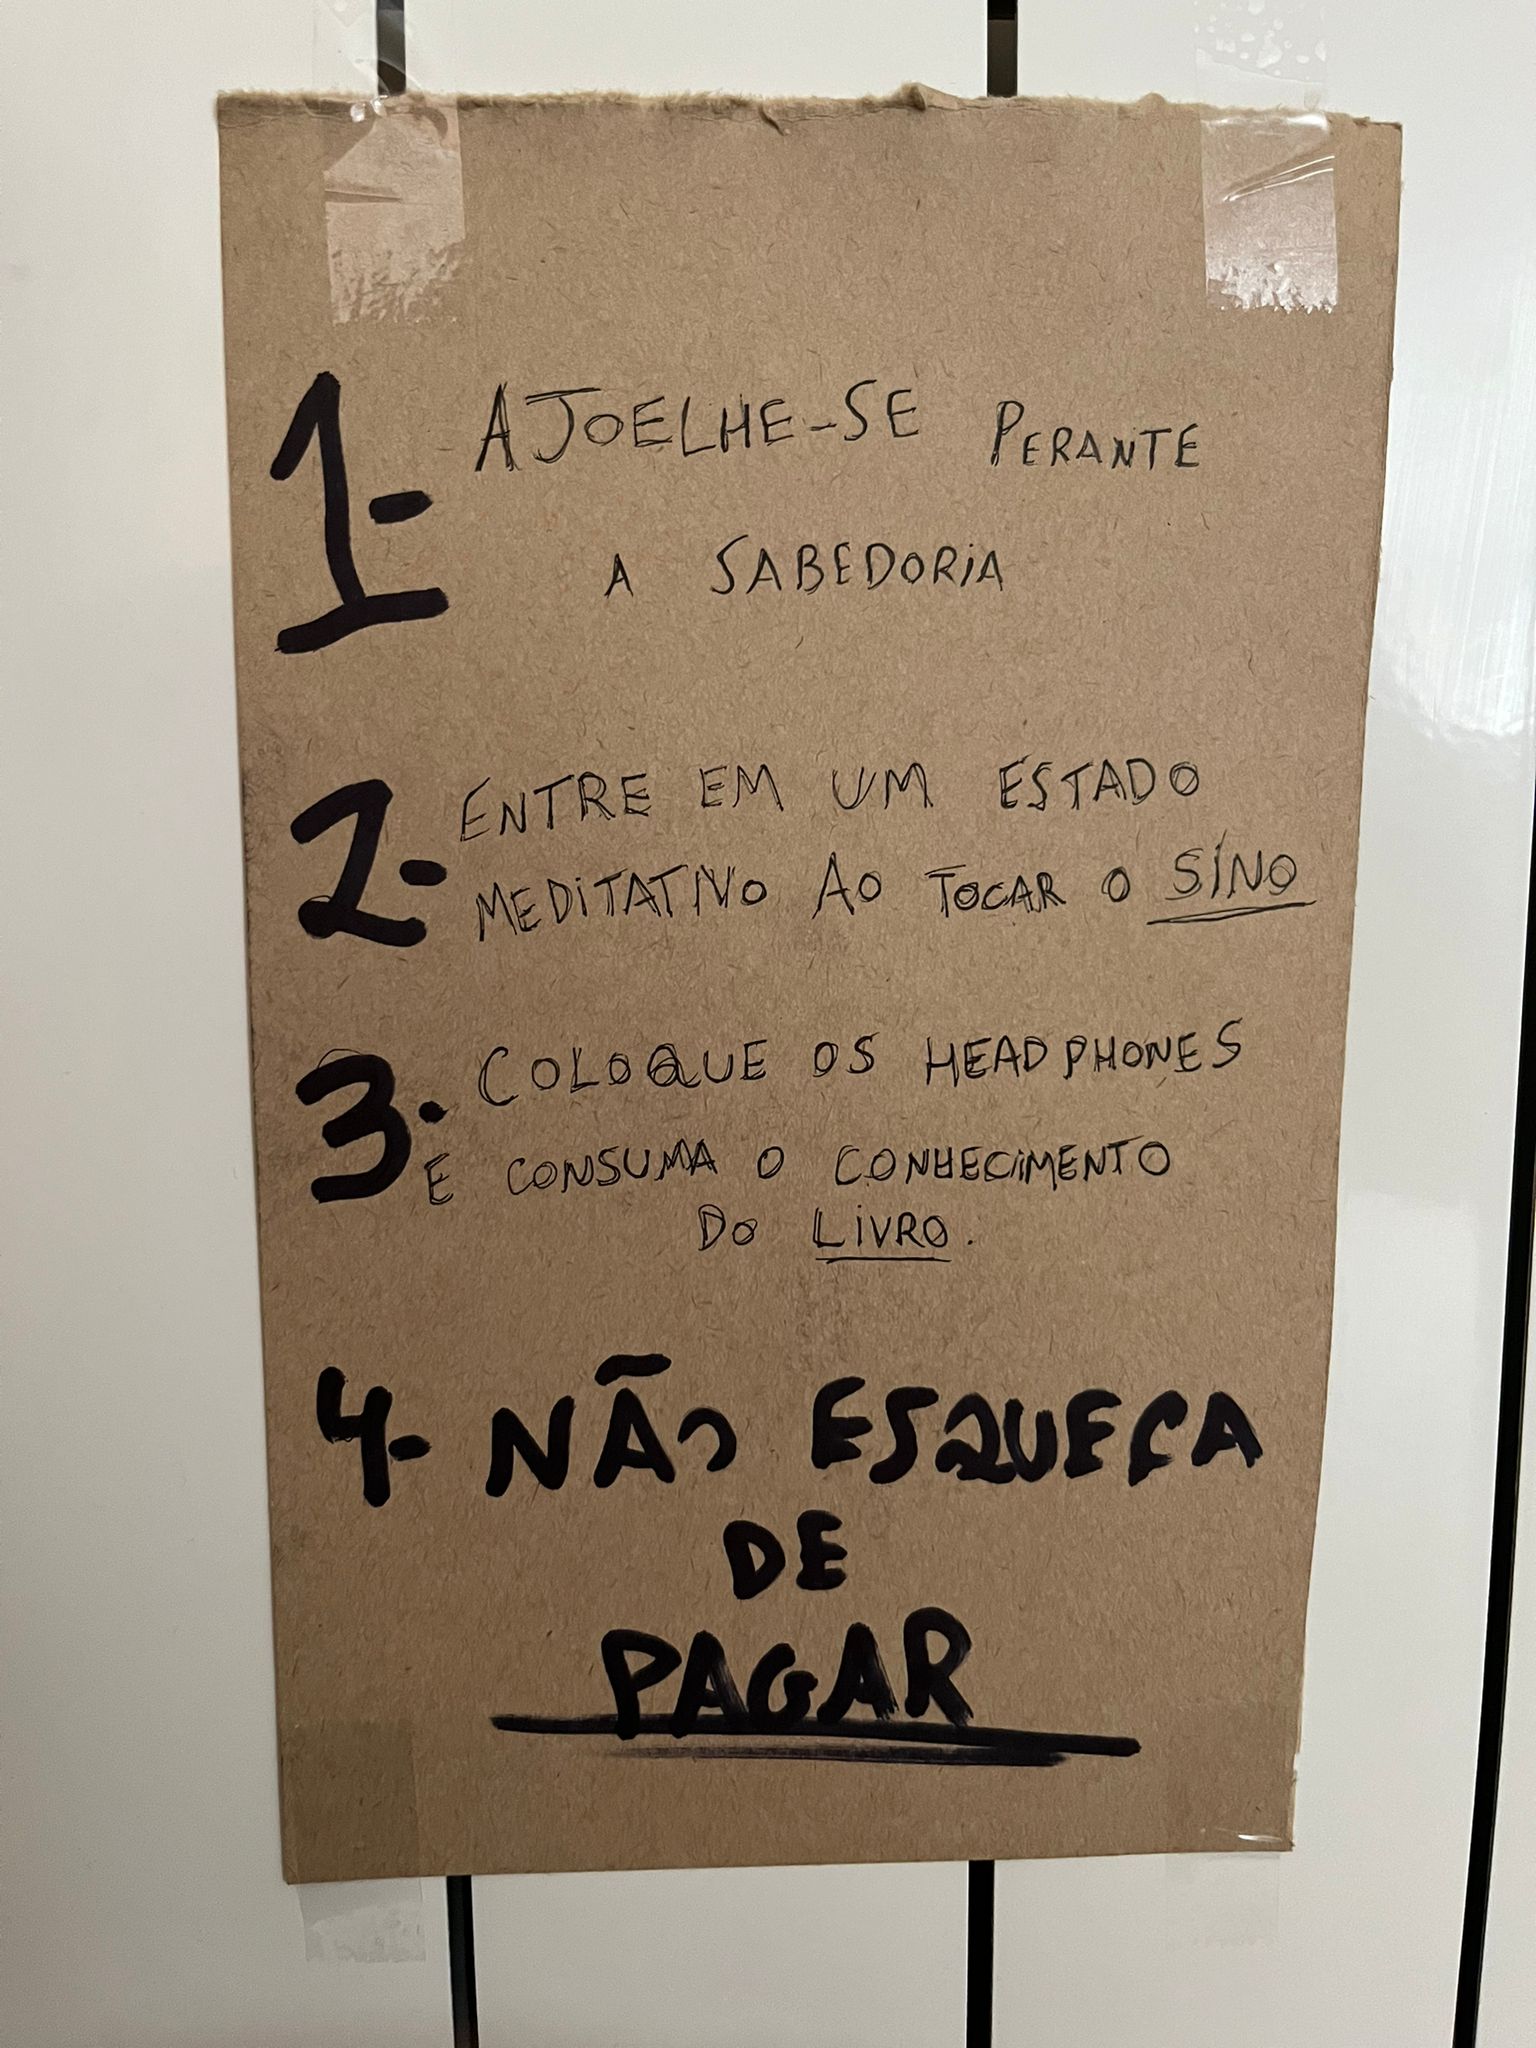 1- AJOELHE-SE PERANTE
A SABEDORIA
2- ENTRE EM UM ESTADO
MEDITATIVO AO TOCAR O SINO
3- COLOQUE OS HEADPHONES
E CONSUMA O CONHECIMENTO
DO LIVRO.
4- NÃO ESQUEÇA
DE
PAGAR